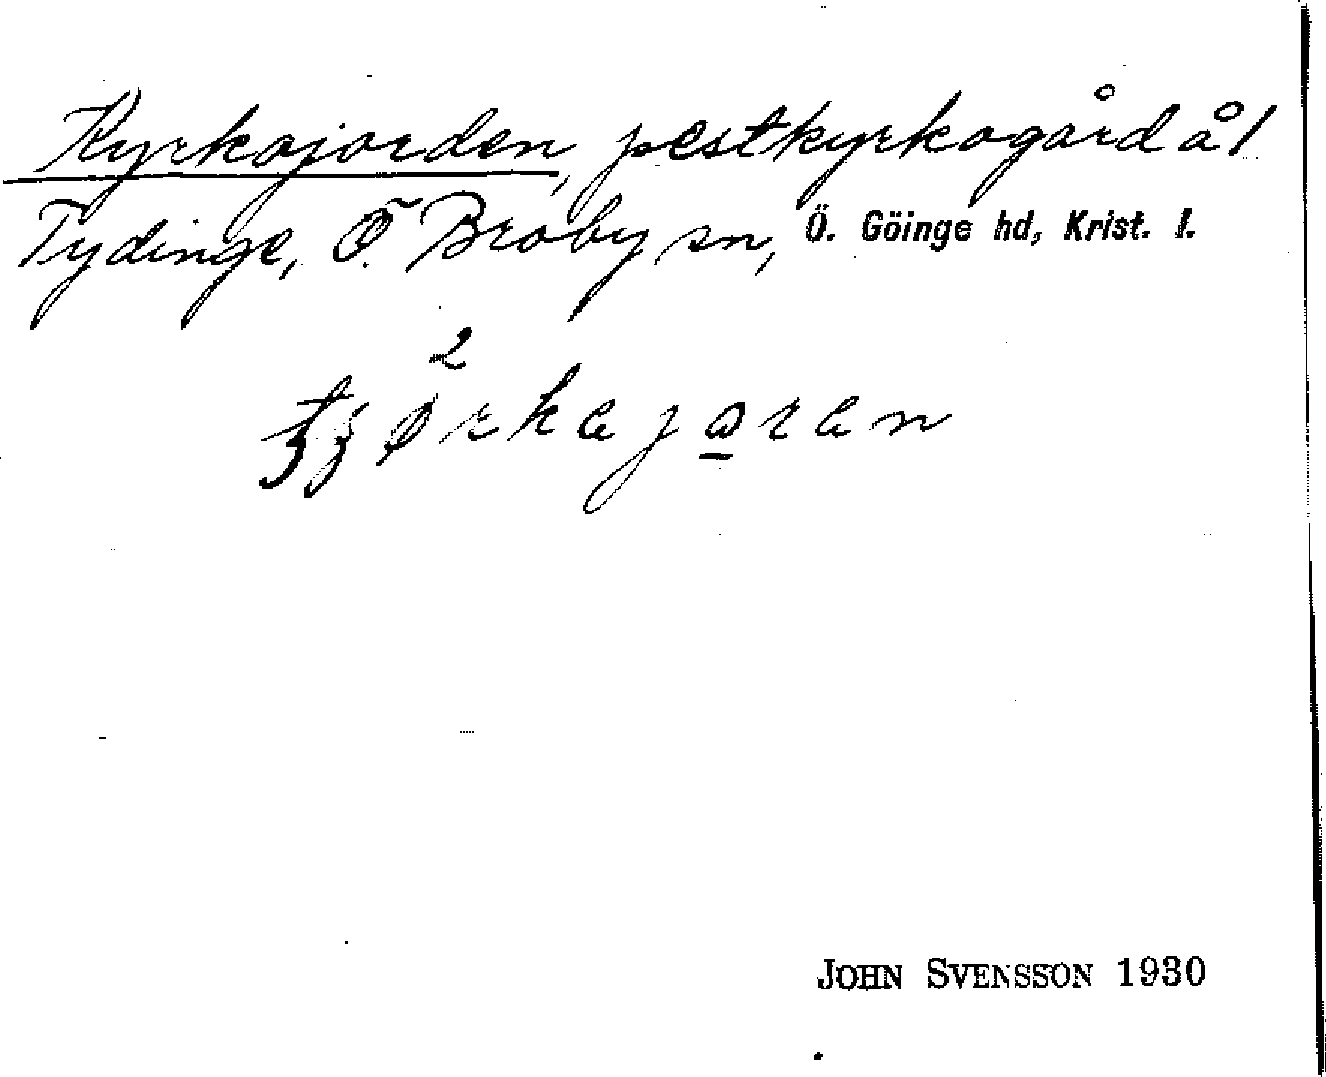 Kyrkajorden, pestkyrkogård å 1
Tydinge, Ö. Broby sn, Ö. Göinge hd, Krist. l.
2
ørkajoran
JOHN SVENSSON 1930